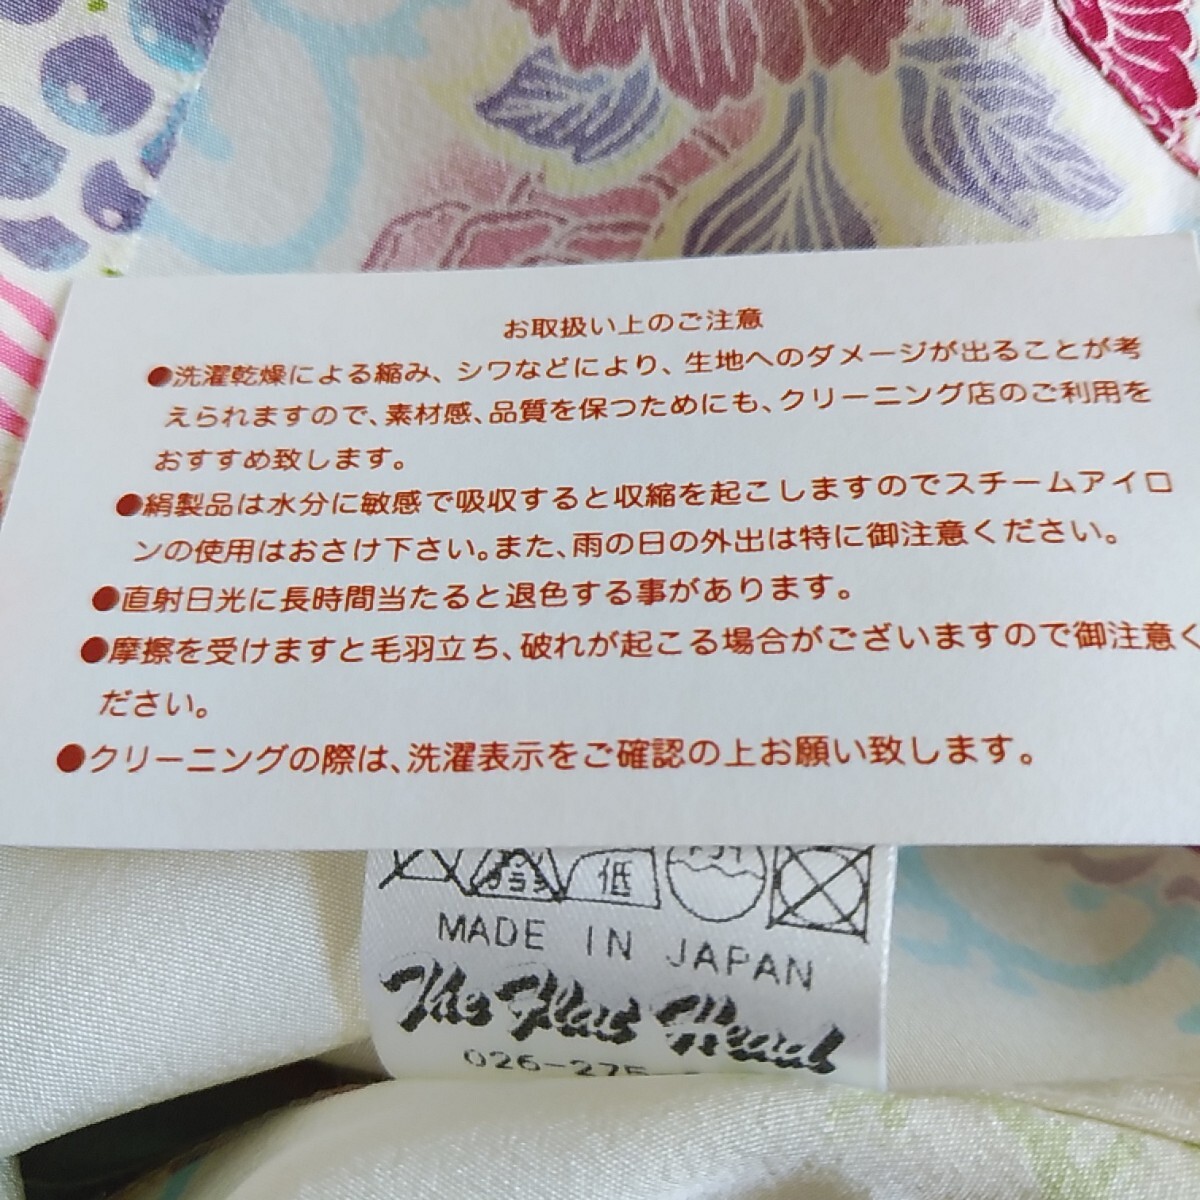 お取扱い上のご注意
●洗濯乾燥による縮み、シワなどにより、生地へのダメージが出ることが考
えられますので、素材感、品質を保つためにも、クリーニング店のご利用を
おすすめ致します。
●絹製品は水分に敏感で吸収すると収縮を起こしますのでスチームアイロ
ンの使用はおさけ下さい。また、雨の日の外出は特に御注意ください。
●直射日光に長時間当たると退色する事があります。
●摩擦を受けますと毛羽立ち、破れが起こる場合がございますので御注意く
ださい。
●クリーニングの際は、洗濯表示をご確認の上お願い致します。
低
MADE IN JAPAN
The Flat Head
026-275-